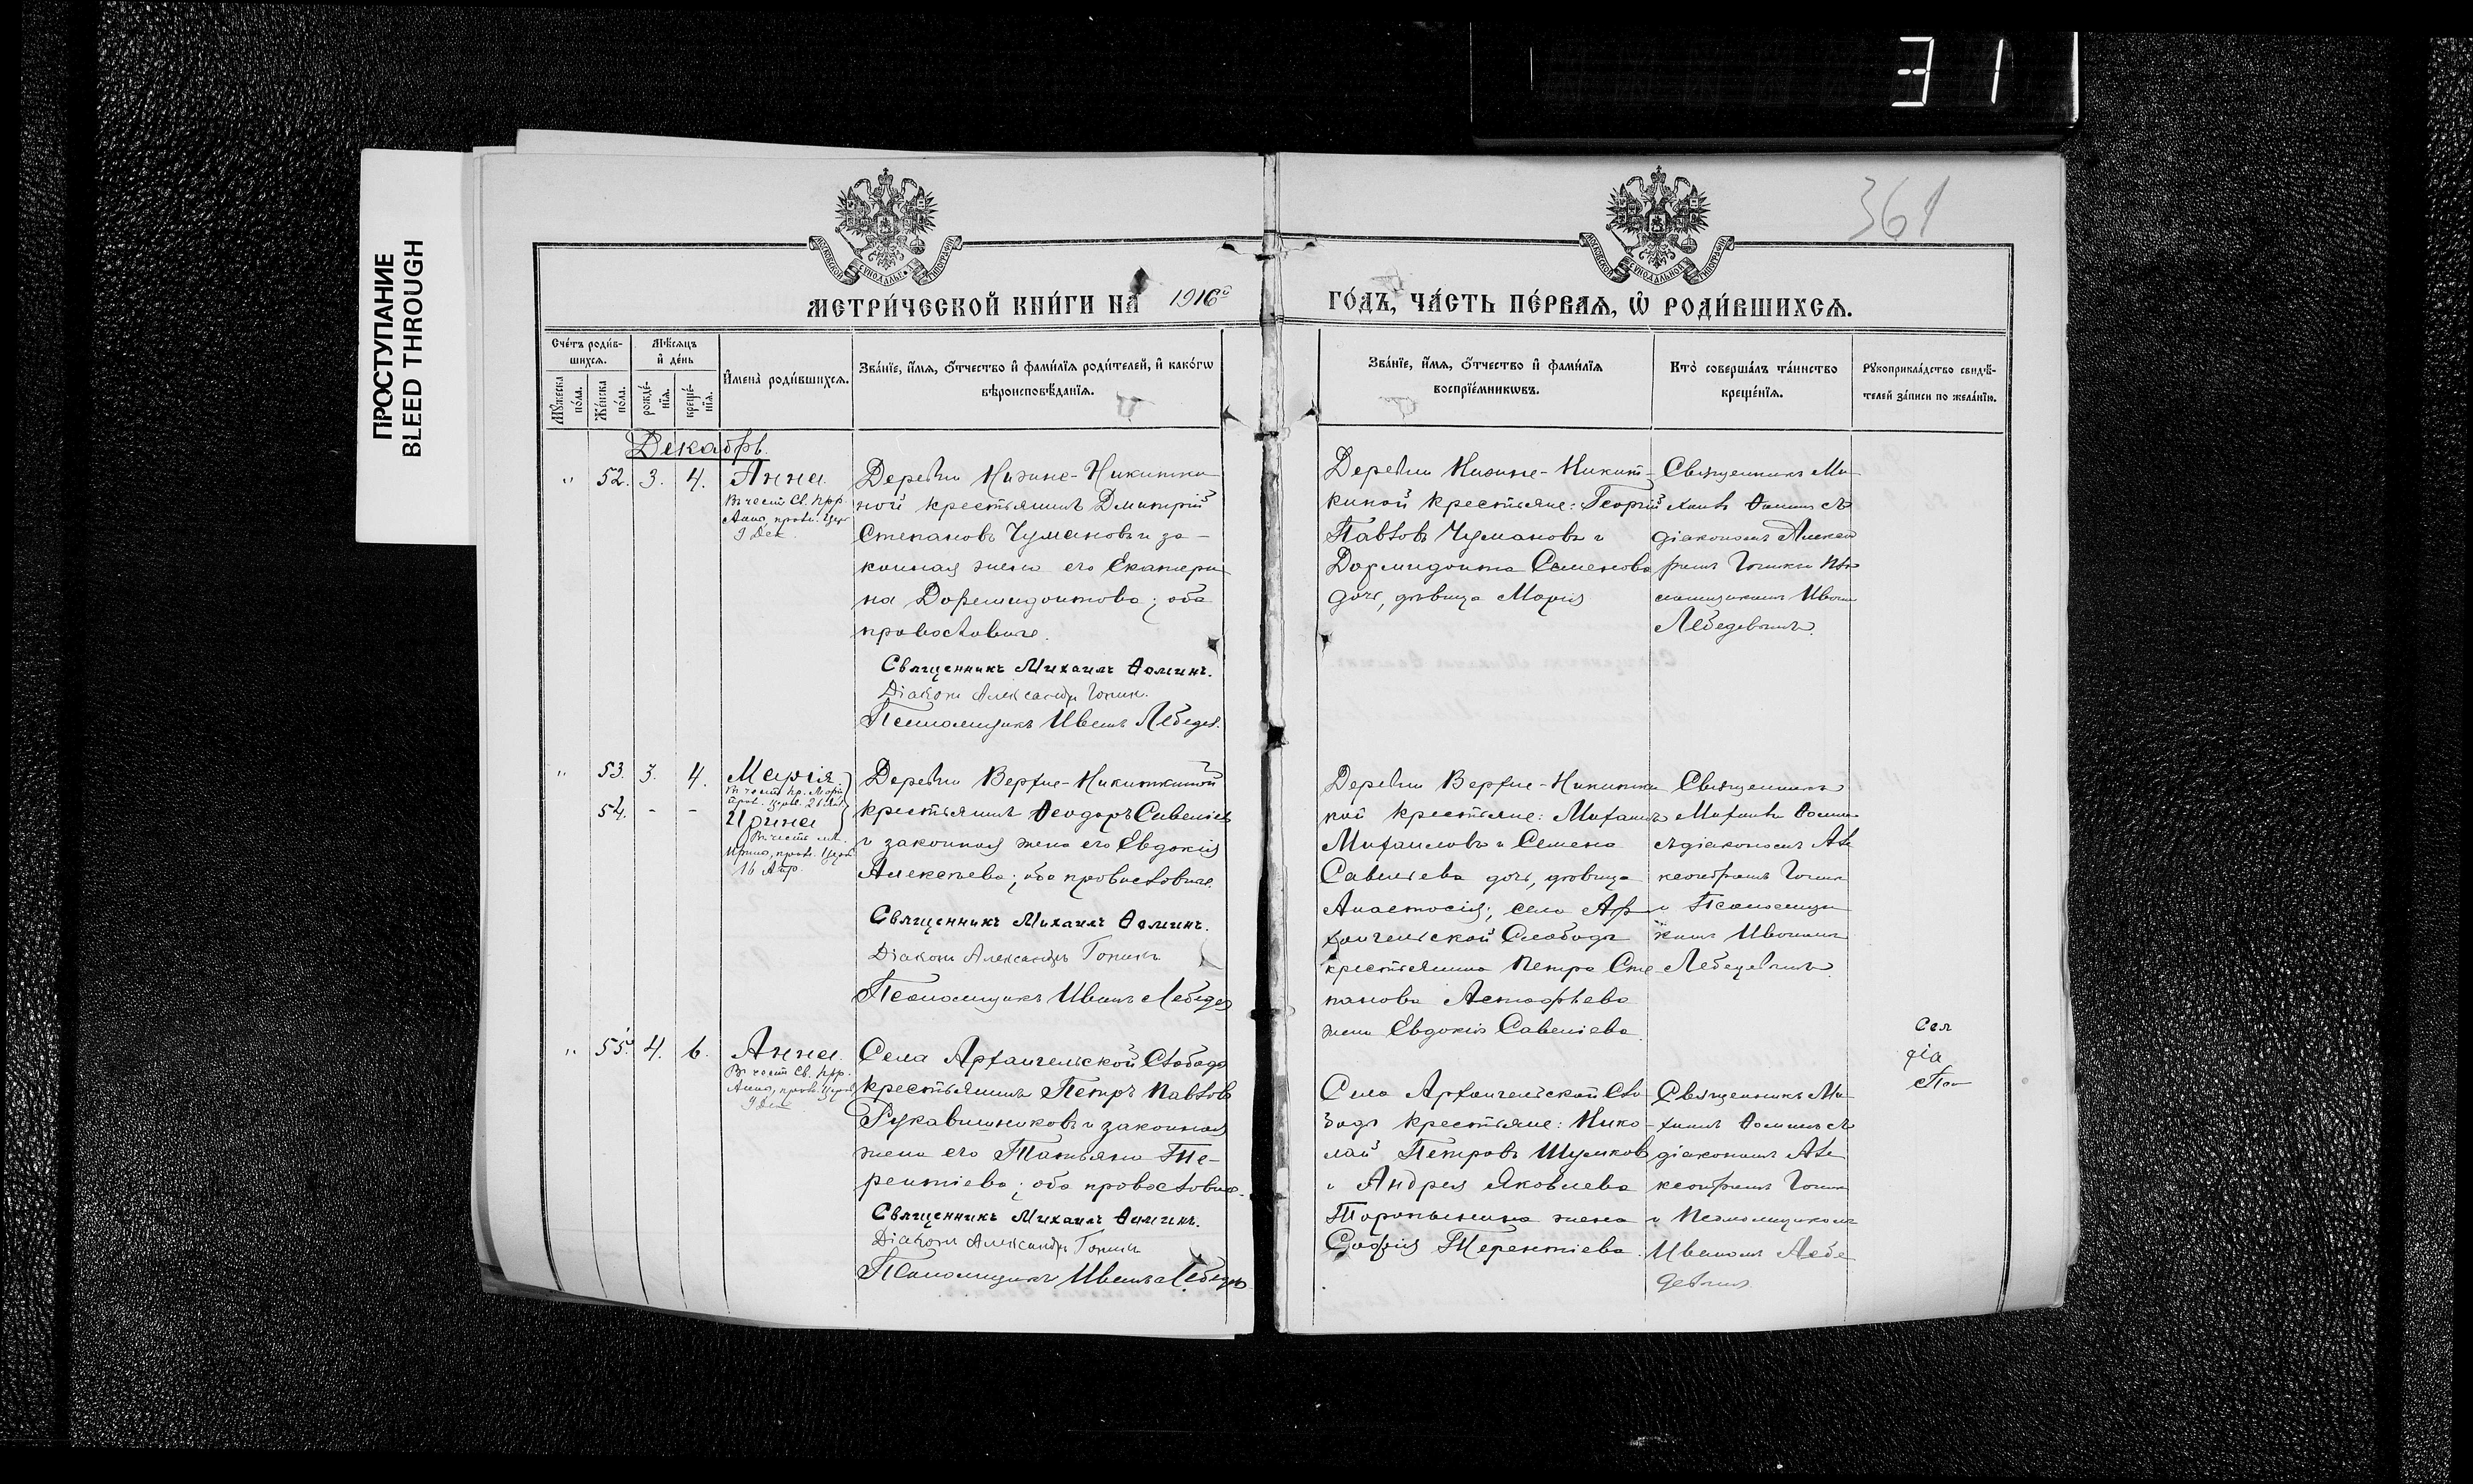 31
ПРОСТУПАНИЕ
BLEED THROUGH
361
МОСКОВСКОЙ СѴНОДАЛЬНОЙ ТИПОГРАФІИ
МОСКОВСКОЙ СѴНОДАЛЬНОЙ ТИПОГРАФІИ
МЕТРИ́ЧЕСКОЙ КНИ́ГИ НА 1916й ГО́ДЪ, ЧА́СТЬ ПЕ́РВАѦ, Ѡ РОДИ́ВШИХСѦ.
Сче́тъ роди́в-
шихсѧ.
Мꙋ́жеска
по́ла.
Же́нска
по́ла.
Мѣ́сѧцъ
и҆ де́нь
рожде́-
нїѧ.
креще́-
нїѧ.
И҆мена̀ роди́вшихсѧ.
Зва́нїе, и҆́мѧ, ѻ҆́тчество и҆ фами́лїѧ роди́телей, и҆ како́гѡ
вѣроисповѣ́данїѧ.
Зва́нїе, и҆́мѧ, ѻ҆́тчество и҆ фами́лїѧ
воспрїе́мникѡвъ.
Кто̀ соверша́лъ та́инство
креще́нїѧ.
Рꙋкоприкла́дство свидѣ́-
телей за́писи по жела́нїю.
Декабрь
" 52. 3. 4. Анна
Въ честь Св. прр.
Анны, празн. Церк.
9 Дек.
Деревни Нижне-Никитки-
ной крестьянинъ Димитрій
Степановъ Чумановъ и за-
конная жена его Екатери
на Дормидонтова; оба
православные.
Священникъ Михаилъ Ѳоминъ.
Діаконъ Александръ Гонинъ.
Псаломщикъ Иванъ Лебедев.
Деревни Нижне-Никит-
киной крестьяне: Георгій
Павловъ Чумановъ и
Дормидонта Семенова
дочь, дѣвица Марія
Священникъ Ми-
хаилъ Ѳоминъ съ
діакономъ Алексан
Лебедевымъ.
" 53. 3. 4. Марія
54. - - Ирина
Въ честь мч.
Ирины, празн. Церк.
16 Апр.
Деревни Верхне-Никиткиной
крестьянинъ Ѳеодоръ Савельев
и законная жена его Евдокія
Алексѣева; оба православные.
Священникъ Михаилъ Ѳоминъ.
Діаконъ Александръ Гонинъ
Псаломщикъ Иванъ Лебедев
Деревни Верхне-Никитки
ной крестьяне: Михаилъ
Михаиловъ и Семена
Савельева дочь, дѣвица
Анастасія; села Ар
хангельской Слободы
крестьянина Петра Сте
панова Астафьева
жена Евдокія Савельева.
Священникъ
Михаилъ Ѳомин
съ діакономъ Але
ксандромъ Гонин
и Псаломщи
комъ Иваномъ
Лебедевымъ.
" 55. 4. 6. Анна.
Въ честь Св. прр.
Анны, празн. Церк.
9 Дек.
Села Архангельской Слободы
крестьянинъ Петръ Павлов
Рукавишниковъ и законная
жена его Татьяна Те-
рентіева; оба православные.
Священникъ Михаилъ Ѳоминъ.
Діаконъ Александръ Гонинъ
Псаломщикъ Иванъ Лебедев
Села Архангельской Сло
боды крестьяне: Нико-
лай Петровъ Шумков
и Андрея Яковлева
жена
Софія Терентіева.
Священникъ Ми-
хаилъ Ѳоминъ съ
діакономъ Але
ксандромъ Гонин
и Псаломщикомъ
Иваномъ Лебе
девымъ